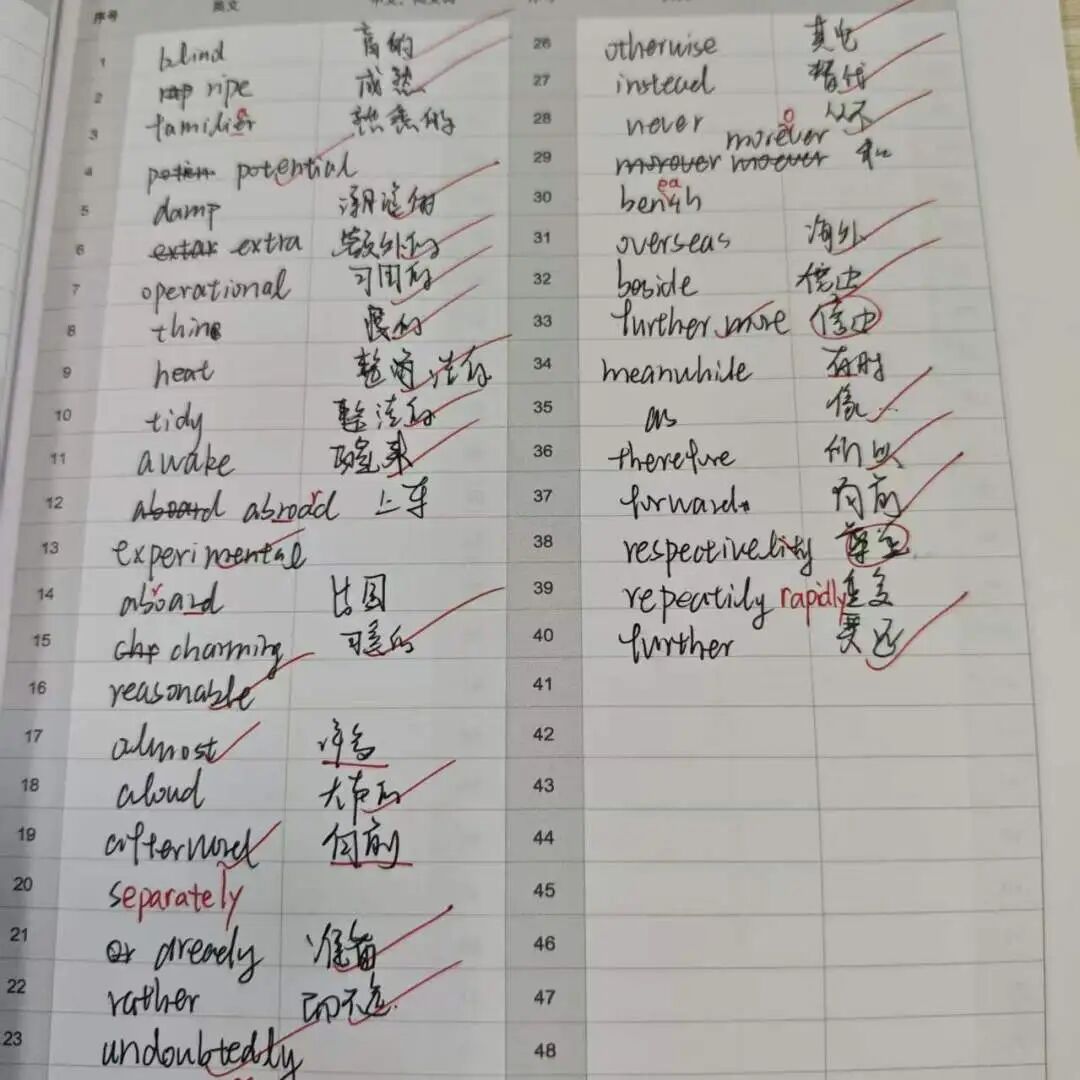 序号 英文
1 blind 盲的
2 ripe 成熟
3 familier 熟悉的
4 potential
5 damp 潮湿的
6 extar extra 额外的
7 operational 可用的
8 thin 瘦的
9 heat
10 tidy 整洁的
11 awake 醒来
12 aboard abroad 上车
13 experimental
14 aboard 出国
15 charming 可爱的
16 reasonable
17 almost 许多
18 aloud 大声的
19 向前
20 separately
21 准备
22 rather 而不是
23 undoubtedly
26 otherwise 其它
27 instead 替代
28 never 从不
morever
29 morover moever 和
30
31 overseas 海外
32 beside 旁边
33 further more 旁边
34 meanwhile 有时
35 as 像
36 therefore 所以
37 forward 向前
38
39 repeatily rapidly 重复
40 further 更远
41
42
43
44
45
46
47
48